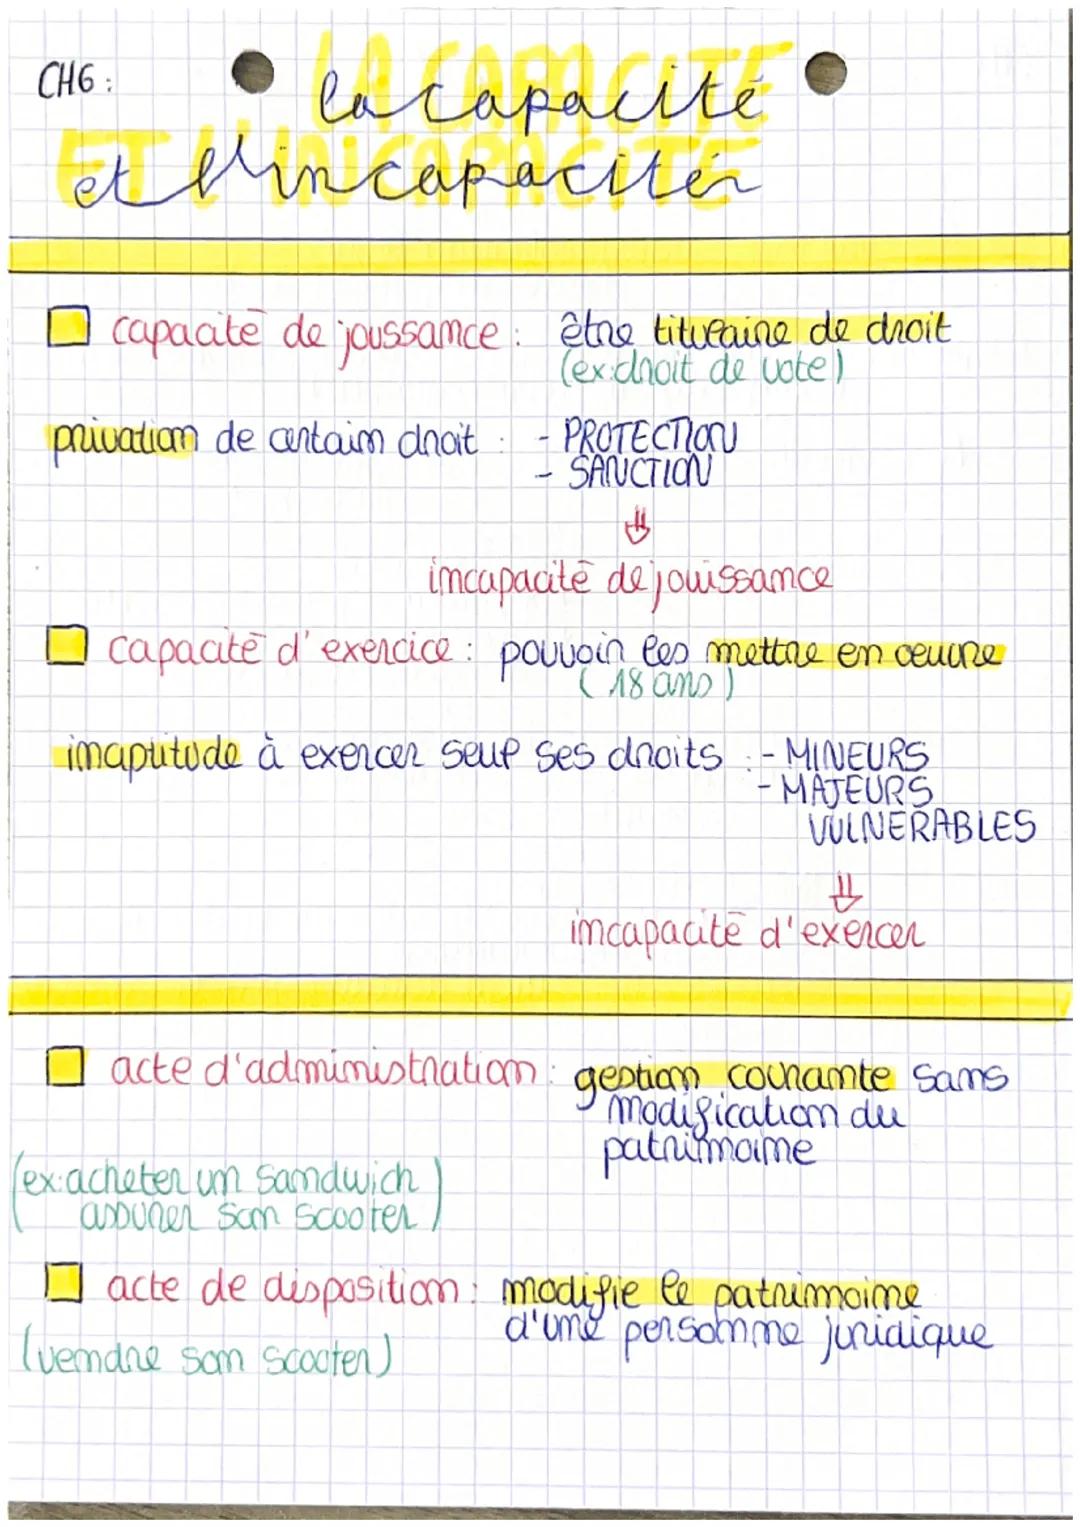 CH6 :
LA CAPACITÉ
la capacité
ET L'INCAPACITÉ
et l'incapacité
capacité de joussance : être titulaire de droit
(ex: droit de vote)
privation de certain droit : - PROTECTION
- SANCTION
⇓
incapacité de jouissance
capacité d'exercice : pouvoir les mettre en oeuvre
(18 ans)
inaptitude à exercer seul ses droits : - MINEURS
- MAJEURS
VULNERABLES
⇓
incapacité d'exercer
acte d'administration : gestion courante sans
modification du
patrimoine
(ex: acheter un sandwich
assurer son scooter)
acte de disposition : modifie le patrimoine
d'une personne juridique
(vendre son scooter)